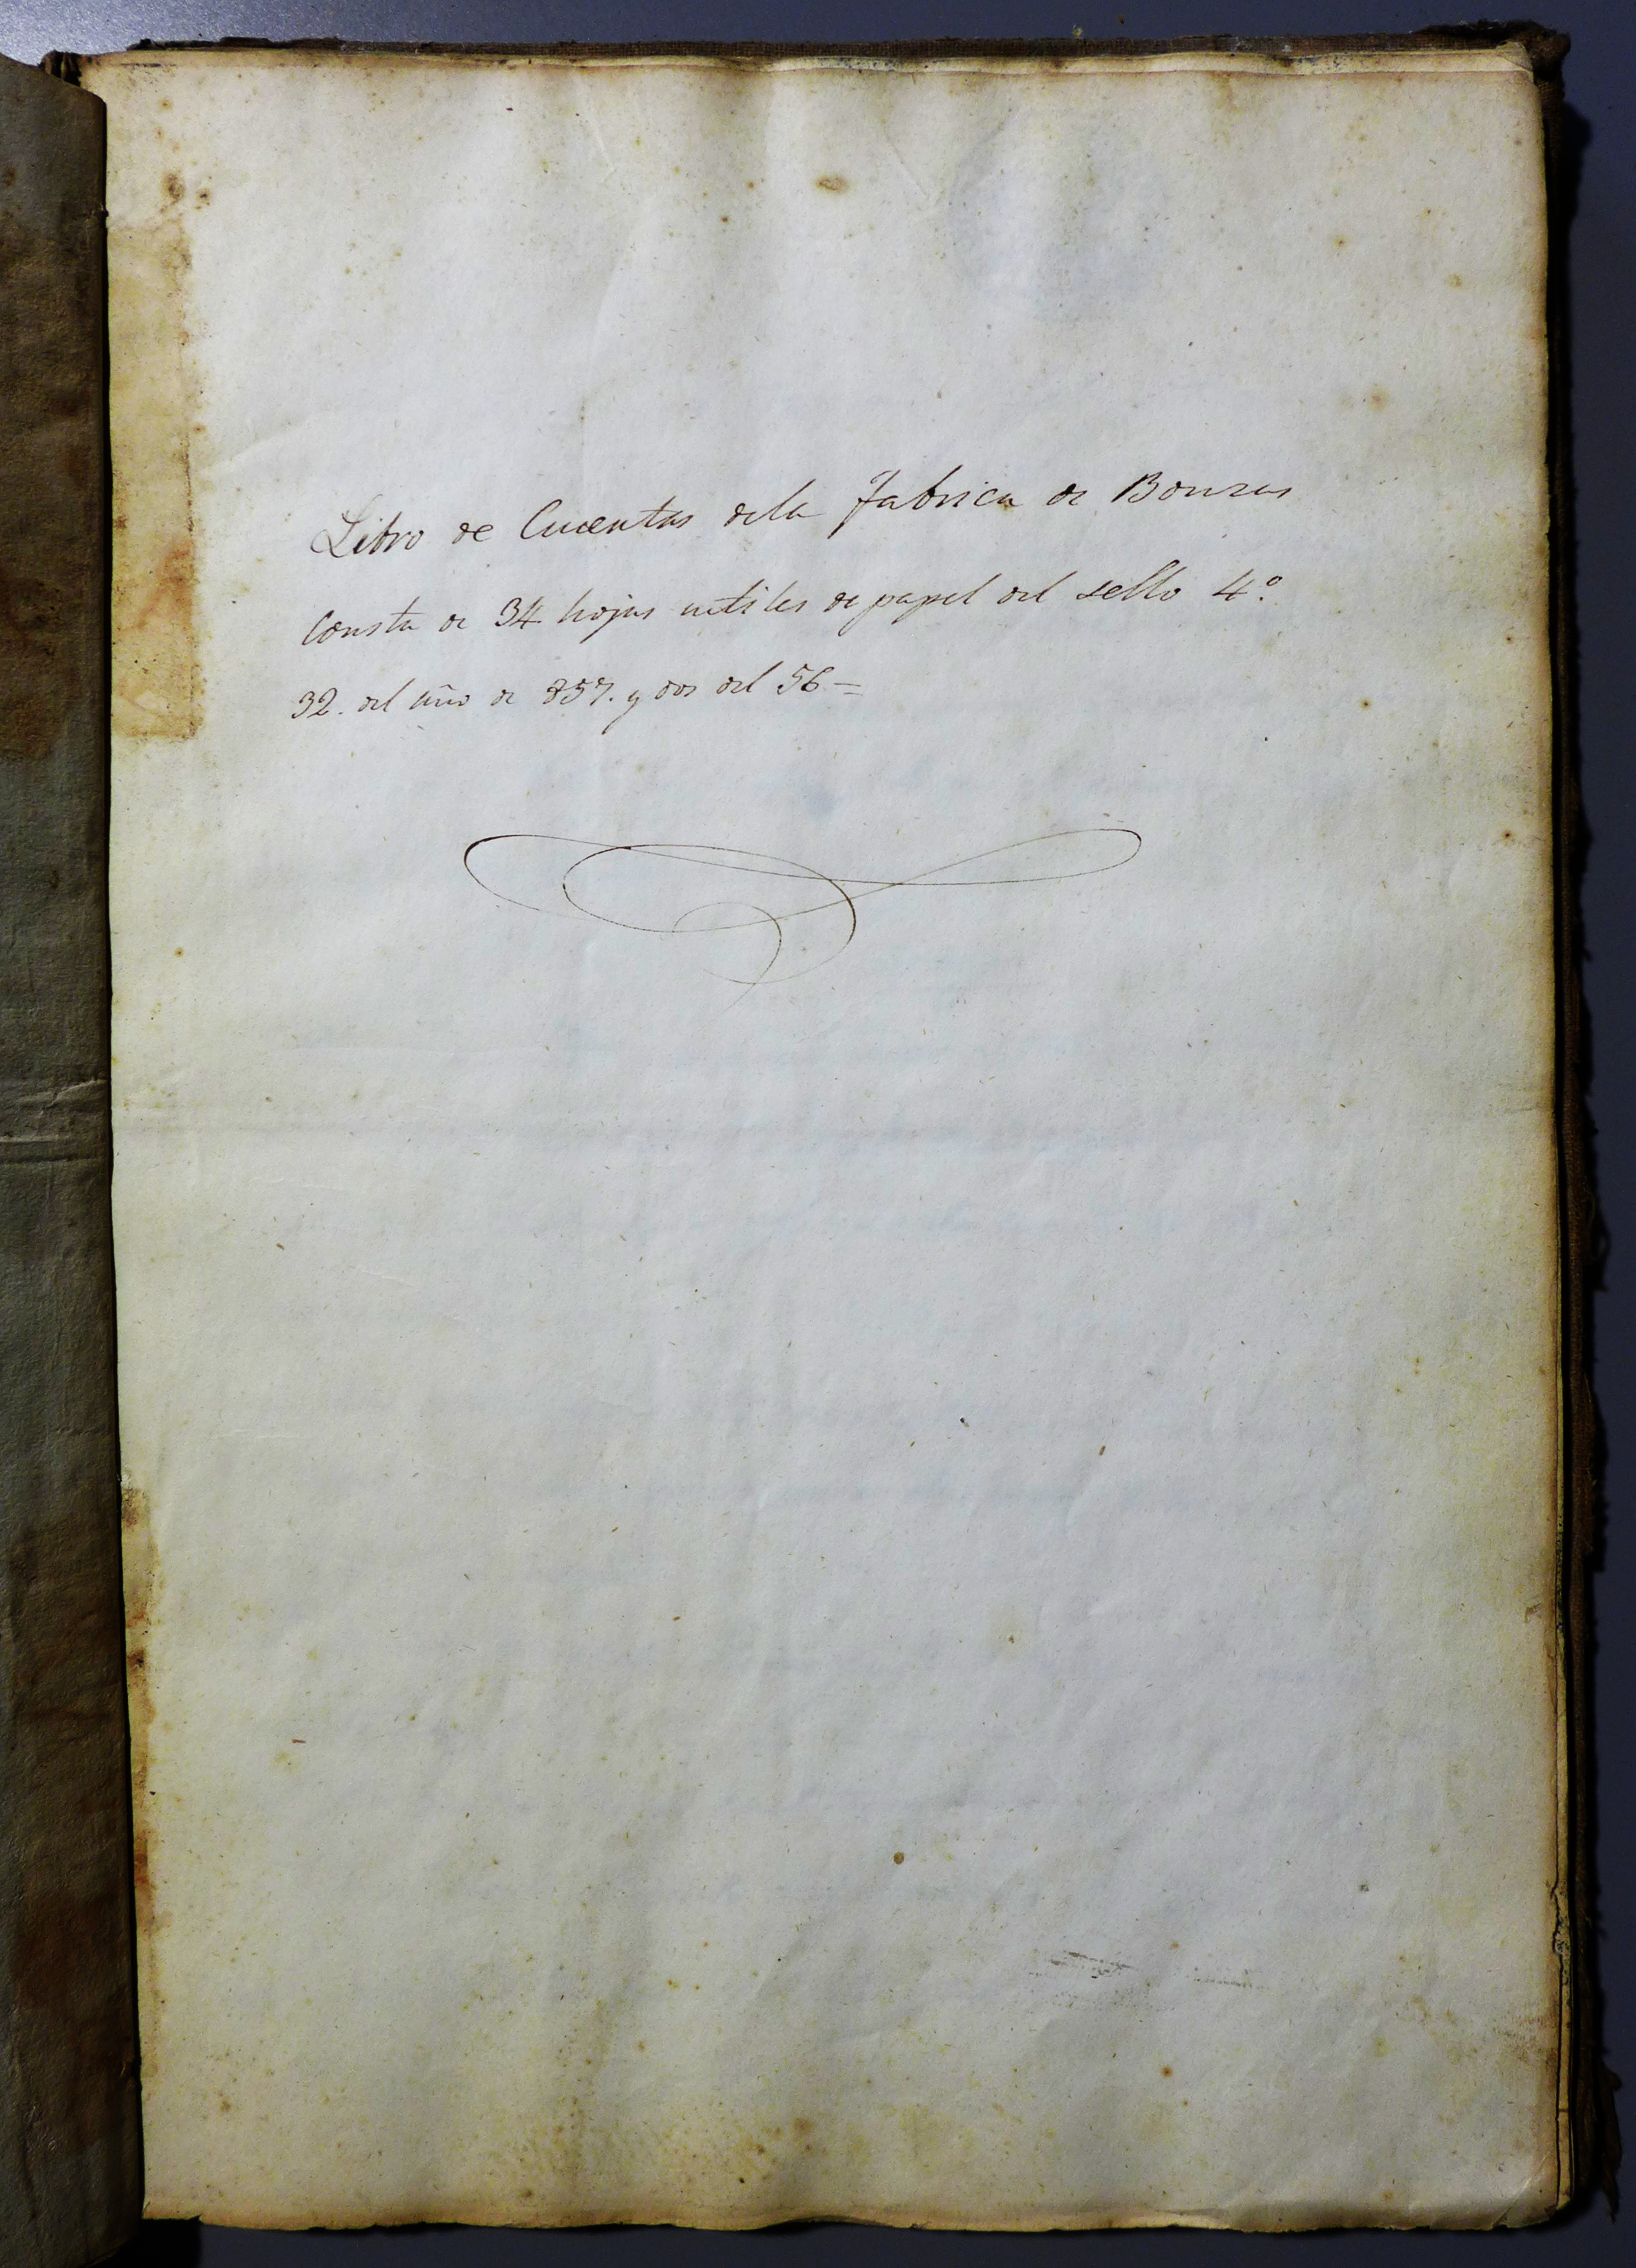 Libro de Cuentas dela fabrica de Bouzas
Consta de 34 hojas utiles de papel del sello 4º
32. del año de 857. y dos del 56=